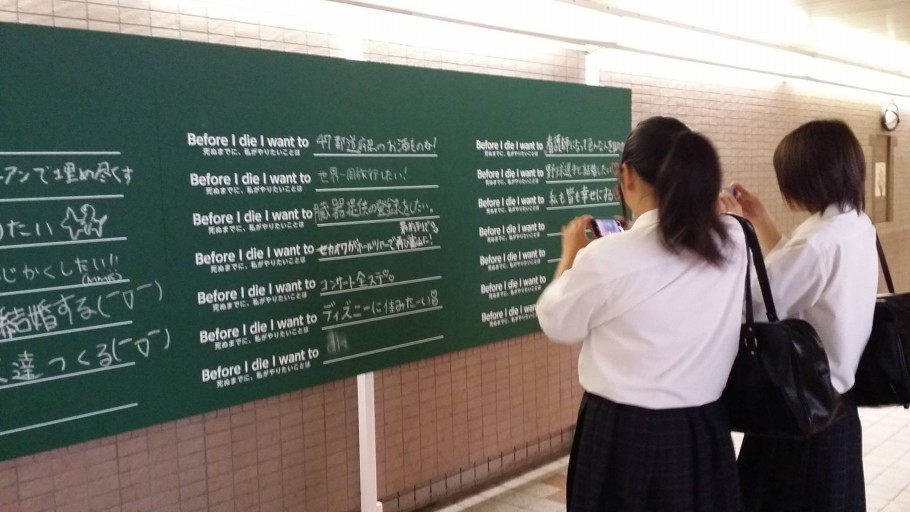 ーアンで埋め尽くす
たい
じかくしたい!!
結婚する(ー▽ー)
達つくる(ー▽ー)
Before I die I want to 47都道府県のお酒をのむ!
死ぬまでに、私がやりたいことは
Before I die I want to 世界一周旅行したい!
死ぬまでに、私がやりたいことは
Before I die I want to 臓器提供の登録をしたい。
死ぬまでに、私がやりたいことは
Before I die I want to セカオワがホールツアーで再び
死ぬまでに、私がやりたいことは
Before I die I want to コンサート全ステ。
死ぬまでに、私がやりたいことは
Before I die I want to ディズニーに住みたーい
死ぬまでに、私がやりたいことは
Before I die I want to
死ぬまでに、私がやりたいことは
Before I die I want to 看護師になって
死ぬまでに、私がやりたいことは
Before I die I want to 野球選手と結婚したい
死ぬまでに、私がやりたいことは
Before I die I want to 私も皆も幸せになる
死ぬまでに、私がやりたいことは
Before I die I want to
死ぬまでに、私がやりたいことは
Before I die I want to
死ぬまでに、私がやりたいことは
Before I die I want to
死ぬまでに、私がやりたいことは